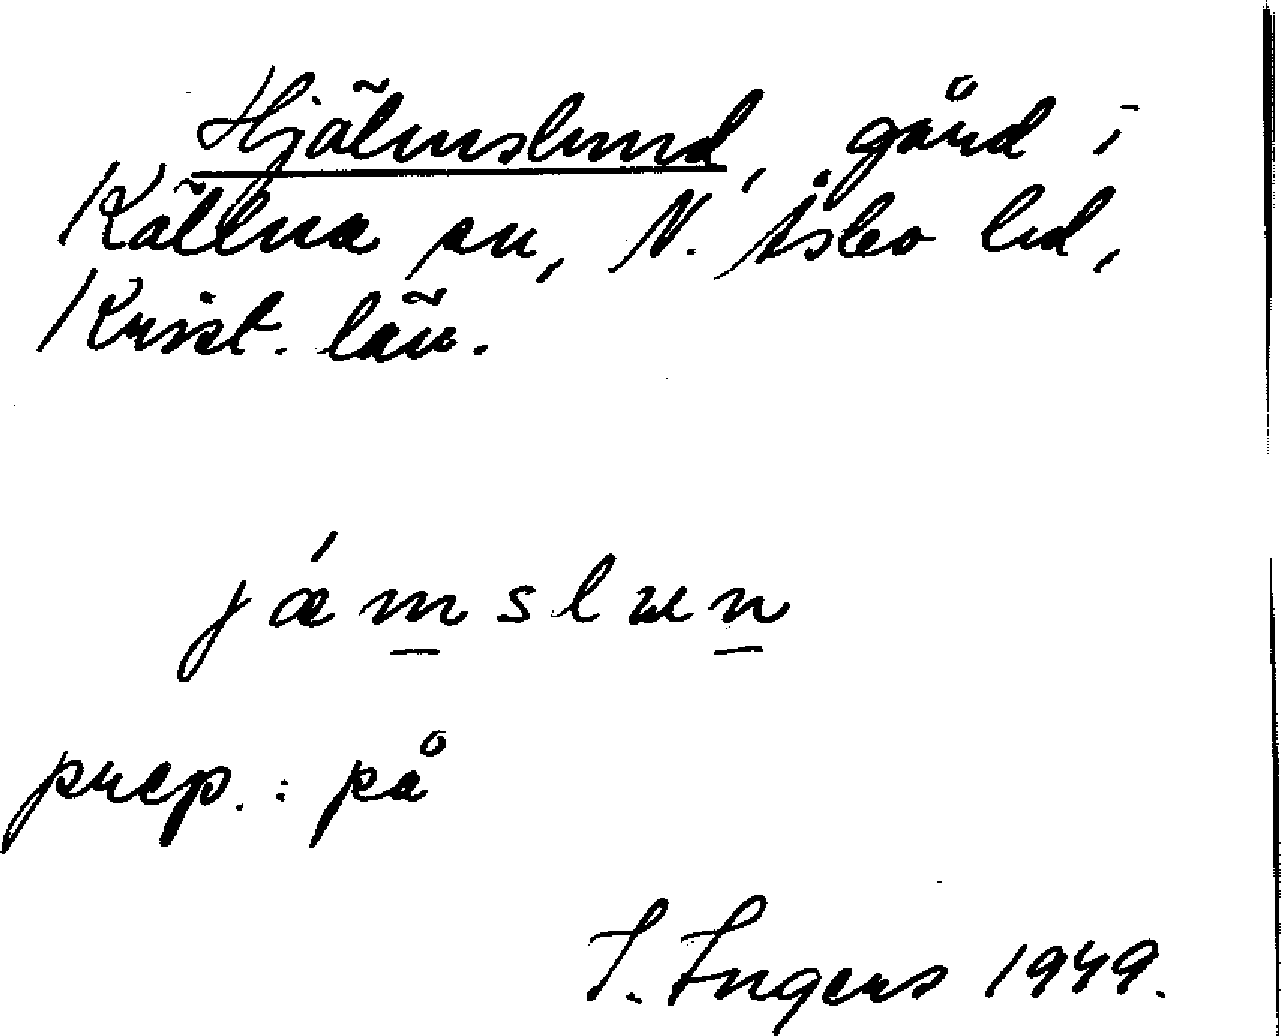 Hjälmslund, gård i
Källna sn, N. Åsbo hd,
Krist. län.
jǽm̲slun̲
prep.: på
I. Ingers 1949.